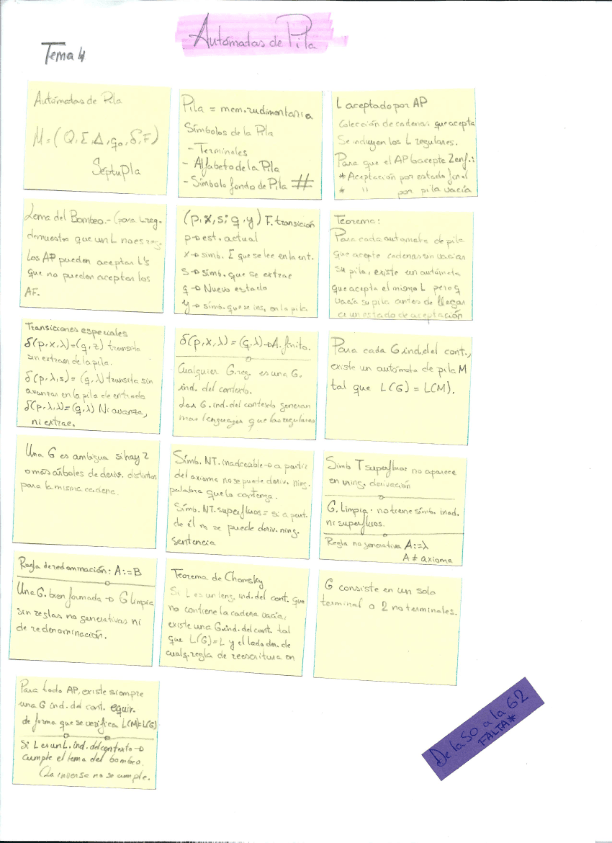 Autómatas de Pila
Tema 4
Autómatas de Pila
M=(Q,Σ,Δ,q0,δ,F)
SéptuPla
Pila = mem. rudimentaria
Símbolos de la Pila
- Terminales
- Alfabeto de la Pila
- Símbolo fondo de Pila #
L aceptado por AP
Colección de cadenas que acepta
Se incluyen los L regulares.
Para que el AP acepte
* Aceptación por estado final
* " por pila vacía
Lema del Bombeo.- Gram. L reg.
demuestra que un L no es reg.
Los AP pueden aceptar L's
que no pueden aceptar los
AF.
(p, x, s; q, y) F. transición
p→est. actual
x→simb. Σ que se lee en la ent.
s→simb. que se extrae
q→ Nuevo estado
y→simb. que se ins. en la pila
Teorema:
Para cada autómata de pila
que acepte cadenas sin vaciar
su pila, existe un autómata
que acepta el mismo L pero q
vacía su pila antes de llegar
a un estado de aceptación
Transiciones especiales
δ(p, x, λ)=(q, z) transita
sin extraer de la pila.
δ(p, λ, s)=(q, λ) transita sin
avanzar en la pila de entrada
δ(p, λ, λ)=(q, λ) Ni avanza,
ni extrae.
δ(p, x, λ)=(q, λ)→A. finito.
Cualquier G reg es una G.
ind. del contexto.
Las G. ind. del contexto generan
mas lenguajes que las regulares
Para cada G ind. del cont.,
existe un autómata de pila M
tal que L(G)=L(M).
Una G es ambigua si hay 2
o más árboles de deriv. distintos
para la misma cadena.
Simb. NT. inaccesible→a partir
del axioma no se puede deriv. ning.
palabra que lo contenga.
Simb. NT. superfluos= si a part.
de él no se puede deriv. ning.
sentencia
Simb T superfluo: no aparece
en ning. derivación
G. Limpia - no tiene simb. inad.
ni superfluos.
Regla no generativa A::=λ
A ≠ axioma
Regla de redenominación: A::=B
Una G. bien formada → G limpia
sin reglas no generativas ni
de redenominación.
Teorema de Chomsky
Si L es un leng. ind. del cont. que
no contiene la cadena vacía,
existe una G ind. del cont. tal
que L(G)=L y el lado der. de
cualq. regla de reescritura en
G consiste en un solo
terminal o 2 no terminales.
Para todo AP, existe siempre
una G ind. del cont. equiv.
de forma que se verifica L(M)=L(G)
Si L es un L. ind. del contexto→
cumple el lema del bombeo.
(La inversa no se cumple.
De la 50 a la 62
FALTA*